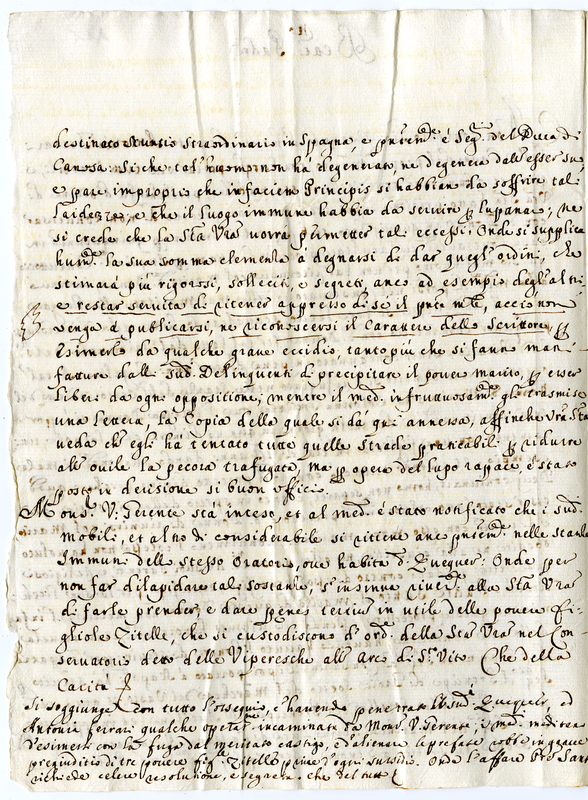 destinato Nuntio straordinario in Spagna, e è Seg. del Duca di
Canosa: Si che tal' huomo non há degenerato, ne degenera dall' esser suo
e pare improprio che in faciem Principis si habbian da soffrire tali
laidezze, e che il luogo immune habbia da servire p lupanare; Ne
si crede che la Stá Vrá vorrá permetter tali eccessi. Onde si supplica
hum. la sua somma clemenza á degnarsi di dar quegl' ordini, che
stimará piú rigorosi, solleciti, e segreti, anco ad esempio degl' altri
e restar servita di ritener appresso di se il pnte, accio non
venga á publicarsi, ne riconoscersi il Carattere dello Scrittore, p
Esimerlo da qualche grave eccidio, tanto piú che si fanno man
fatture dalli Sud. Delinquenti di precipitare il pover marito, p esser
liberi da ogni oppositione; mentre il med. infruttuosam. gli trasmise
una lettera, la Copia della quale si dá qui annessa, affinche Vrá Stá
veda ch' egli há tentato tutte quelle strade praticabili p ridurre
all' ovile la pecora trafugata, ma p opera del lupo rapace, é stato
posto in derisione si buon officio.
Mons. V. Gerente stá inteso, et al med. é stato notificato che i sud.
mobili, et altro di considerabile si ritiene anco nelle stanze
Immuni dello stesso Oratorio, ove habita d. Quequer: Onde per
non far dilapidare tale sostanza, s' insinua river. alla Stá Vrá
di farle prender, e dare penes tertium in utile delle povere Fi
gliole Zitelle, che si custodiscono d' ord. della Stá Vrá nel Con
servatorio detto delle Viperesche all' Arco di S. Vito. Che della
Caritá
Si soggiunge con tutto l'ossequio, c' havendo penetrato li sud. Quequer, ed
Antonia ferrari qualche incaminata da Mons. V. Gerente, i med. meditan
d'esimersi con la fuga dal meritato castigo, ed alienare le prefate robbe in grave
pregiuditio di tre povere fig. Zitelle prive d'ogni sussidio. Onde l'affare P. Sant
richiede celere resolutione, e segreta. che del tutto